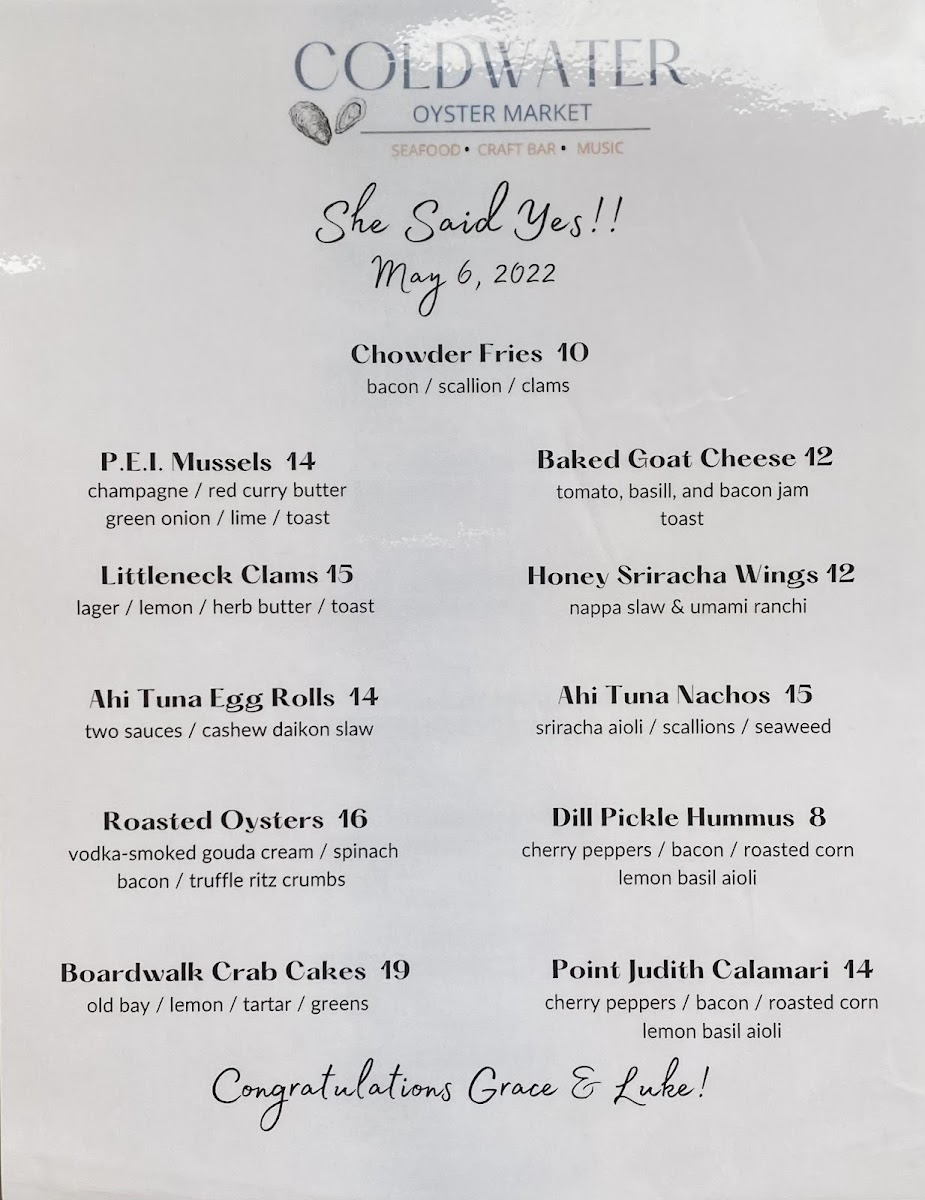 COLDWATER
OYSTER MARKET
SEAFOOD • CRAFT BAR • MUSIC
She Said Yes!!
May 6, 2022
Chowder Fries 10
bacon / scallion / clams
P.E.I. Mussels 14
champagne / red curry butter
green onion / lime / toast
Baked Goat Cheese 12
tomato, basill, and bacon jam
toast
Littleneck Clams 15
lager / lemon / herb butter / toast
Honey Sriracha Wings 12
nappa slaw & umami ranchi
Ahi Tuna Egg Rolls 14
two sauces / cashew daikon slaw
Ahi Tuna Nachos 15
sriracha aioli / scallions / seaweed
Roasted Oysters 16
vodka-smoked gouda cream / spinach
bacon / truffle ritz crumbs
Dill Pickle Hummus 8
cherry peppers / bacon / roasted corn
lemon basil aioli
Boardwalk Crab Cakes 19
old bay / lemon / tartar / greens
Point Judith Calamari 14
cherry peppers / bacon / roasted corn
lemon basil aioli
Congratulations Grace & Luke!